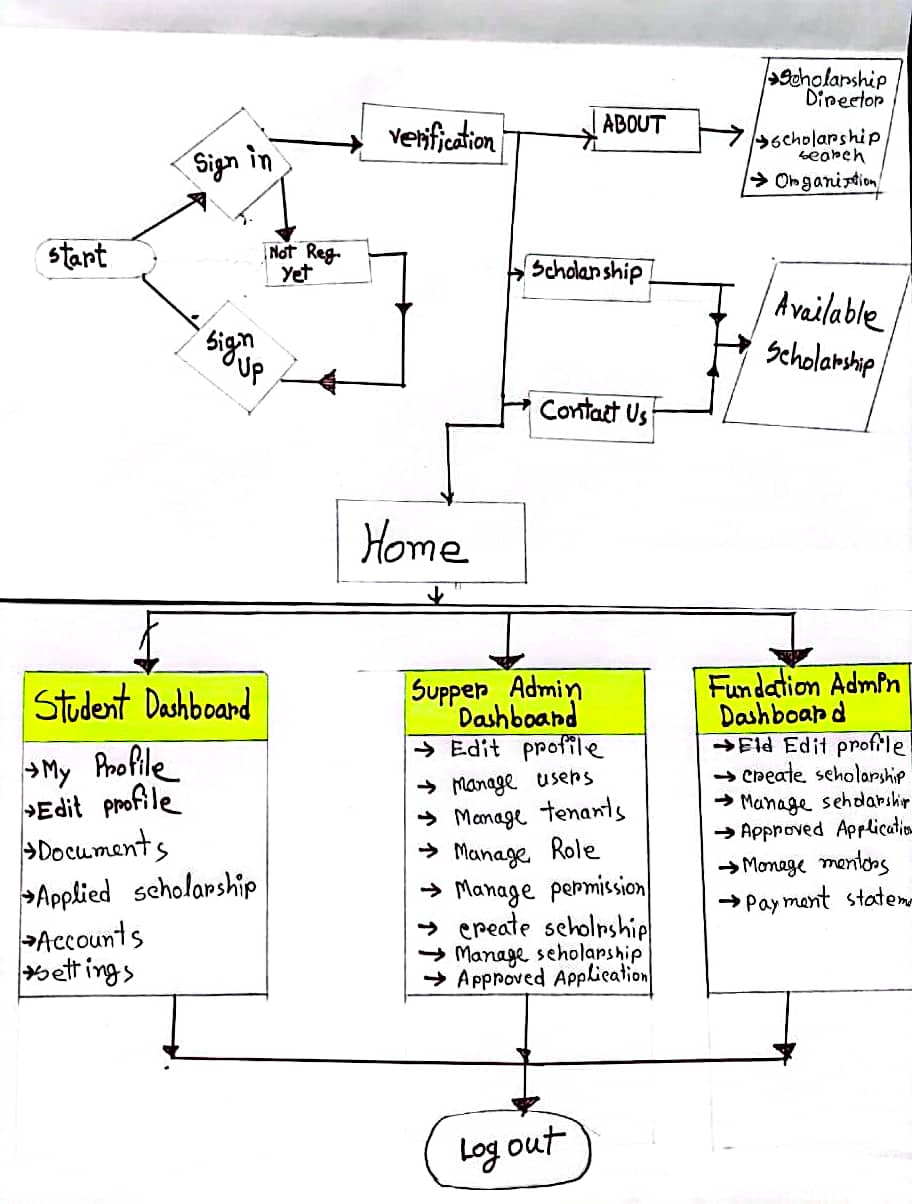 Start
Sign in
Not Reg.
yet
Sign
Up
Verification
ABOUT
→Scholarship
Director
→scholarship
search
→ Organiztion
Scholarship
Contact Us
Available
Scholarship
Home
Student Dashboard
→My Profile
→Edit profile
→Documents
→Applied scholarship
→Accounts
→settings
Supper Admin
Dashboard
→ Edit profile
→ Manage users
→ Manage tenants
→ Manage Role
→ Manage permission
→ create scholrship
→ Manage scholarship
→ Approved Application
Fundation Admin
Dashboard
→Eld Edit profile
→ create scholarship
→ Manage scholarship
→ Approved Applicatio
→ Manage mentors
→ Payment statem
Log out